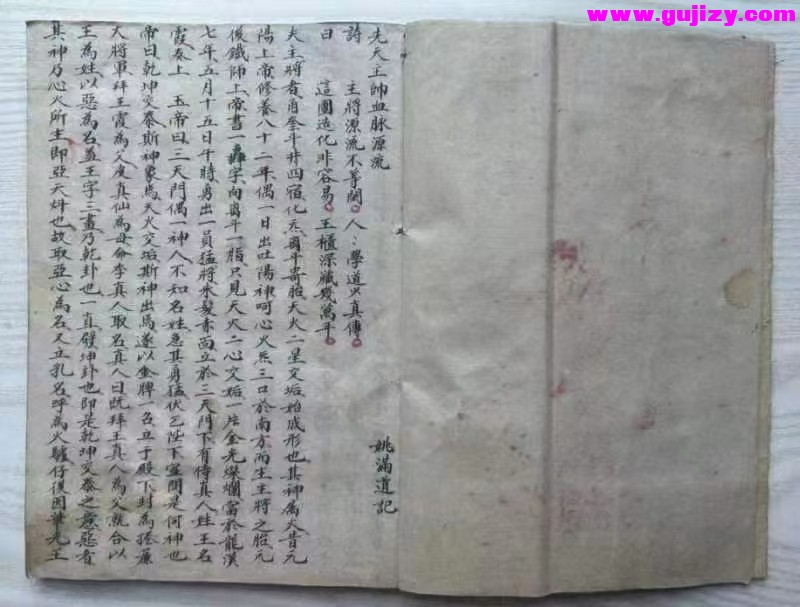 www.gujizy.com
先天王帥血脉源流
姚滿道記
詩 主將源流不等閑。人:學道少真傳。
曰 這團造化非容易。玉櫃深藏幾萬年。
夫主將者角奎斗井四宿化 年寄胎大火二星交姤始成形也其神属火昔元
陽上帝修養八十二年偶一日出吐陽神呵心火炁三口於南方而生主將之胎元
後鐵師上帝書一 字向 斗一指只見天火二心交姤一片金光燦爛當於龍漢
七年五月十五日午時勇出一員猛將朱髮赤面立於三天門下有侍真人姓王名
霞奏上 玉帝曰三天門偶一神人不知名姓 其勇猛伏乞陛下宣問是何神也
帝曰乾坤交泰斯神象焉天火交姤斯神出焉遂以金牌一召立于殿下封為捲簾
大將軍拜王霞為父度真仙為母命李真人取名真人曰既拜王真人為父就合以
王為姓以惡為名蓋王字三畫乃乾卦也一直 坤卦也即是乾坤交泰之意惡者
其神乃心火所生即亞天 也故取亞心為名又立乳名呼為火驢仔後因華光王